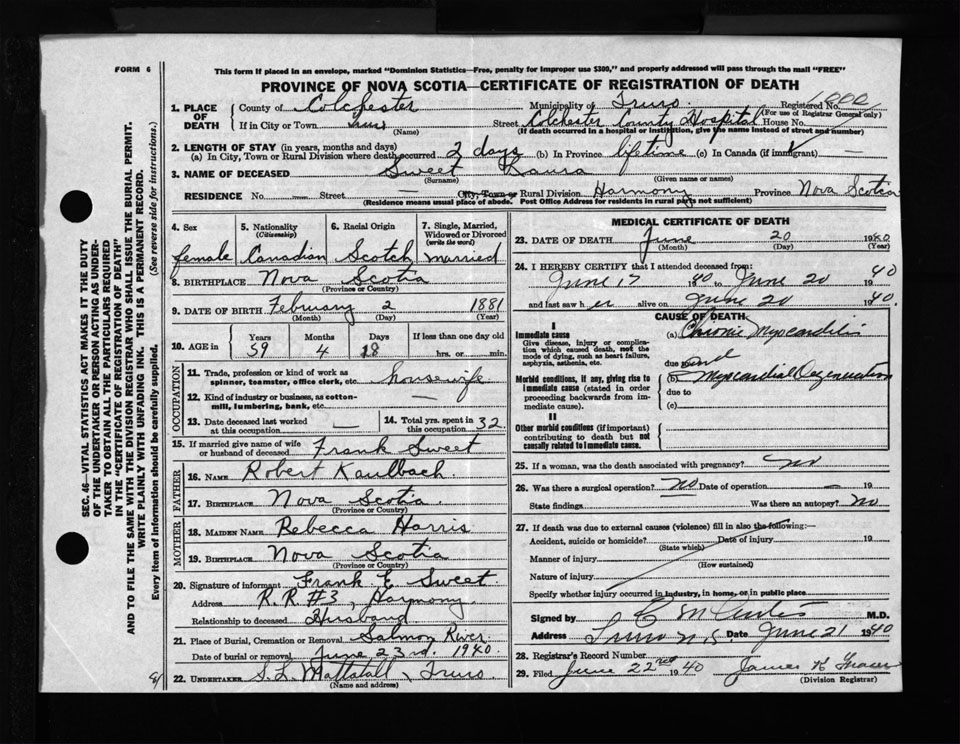 FORM 6
This form if placed in an envelope, marked "Dominion Statistics—Free, penalty for improper use $300," and properly addressed will pass through the mail "FREE"
PROVINCE OF NOVA SCOTIA—CERTIFICATE OF REGISTRATION OF DEATH
SEC. 46—VITAL STATISTICS ACT MAKES IT THE DUTY
OF THE UNDERTAKER OR PERSON ACTING AS UNDER-
TAKER TO OBTAIN ALL THE PARTICULARS REQUIRED
IN THE "CERTIFICATE OF REGISTRATION OF DEATH"
AND TO FILE THE SAME WITH THE DIVISION REGISTRAR WHO SHALL ISSUE THE BURIAL PERMIT.
WRITE PLAINLY WITH UNFADING INK. THIS IS A PERMANENT RECORD.
Every item of information should be carefully supplied. (See reverse side for instructions.)
1. PLACE OF DEATH
County of Colchester Municipality of Truro Registered No.
(For use of Registrar General only)
If in City or Town Truro Street Colchester County Hospital House No.
(Name) (If death occurred in a hospital or institution, give the name instead of street and number)
2. LENGTH OF STAY (in years, months and days)
(a) In City, Town or Rural Division where death occurred 2 days (b) In Province lifetime (c) In Canada (if immigrant) —
3. NAME OF DECEASED Sweet Laura
(Surname) (Given name or names)
RESIDENCE No. — Street — City, Town or Rural Division Harmony Province Nova Scotia
(Residence means usual place of abode. Post Office Address for residents in rural parts not sufficient)
4. Sex female
5. Nationality (Citizenship) Canadian
6. Racial Origin Scotch
7. Single, Married, Widowed or Divorced (write the word) married
8. BIRTHPLACE Nova Scotia
(Province or Country)
9. DATE OF BIRTH February 2 1881
(Month) (Day) (Year)
10. AGE in Years 59 Months 4 Days 18 If less than one day old hrs. or min.
OCCUPATION
11. Trade, profession or kind of work as spinner, teamster, office clerk, etc. housewife
12. Kind of industry or business, as cotton-mill, lumbering, bank, etc. —
13. Date deceased last worked at this occupation —
14. Total yrs. spent in this occupation 32
15. If married give name of wife or husband of deceased Frank Sweet
FATHER
16. NAME Robert Kaulbach
17. BIRTHPLACE Nova Scotia
(Province or Country)
MOTHER
18. MAIDEN NAME Rebecca Harris
19. BIRTHPLACE Nova Scotia
(Province or Country)
20. Signature of informant Frank E Sweet
Address R.R. #3, Harmony
Relationship to deceased Husband
21. Place of Burial, Cremation or Removal Salmon River
Date of burial or removal June 23rd. 1940.
22. UNDERTAKER S. L. Mattatall, Truro
(Name and address)
MEDICAL CERTIFICATE OF DEATH
23. DATE OF DEATH June 20 1940
(Month) (Day) (Year)
24. I HEREBY CERTIFY that I attended deceased from:
June 17 1940 to June 20 1940
and last saw her alive on June 20 1940.
CAUSE OF DEATH
I
Immediate cause
Give disease, injury or complication which caused death, not the mode of dying, such as heart failure, asphyxia, asthenia, etc.
(a) Chronic Myocarditis
due to and
Morbid conditions, if any, giving rise to immediate cause (stated in order proceeding backwards from immediate cause).
(b) Myocardial Degeneration
due to
(c)
II
Other morbid conditions (if important) contributing to death but not causally related to immediate cause.
25. If a woman, was the death associated with pregnancy? no
26. Was there a surgical operation? no Date of operation — 19
State findings Was there an autopsy? no
27. If death was due to external causes (violence) fill in also the following:—
Accident, suicide or homicide? Date of injury 19
(State which)
Manner of injury
(How sustained)
Nature of injury
Specify whether injury occurred in industry, in home, or in public place
Signed by C M Curtis M.D.
Address Truro N.S. Date June 21 1940
28. Registrar's Record Number
29. Filed June 22nd 1940 James K
(Division Registrar)